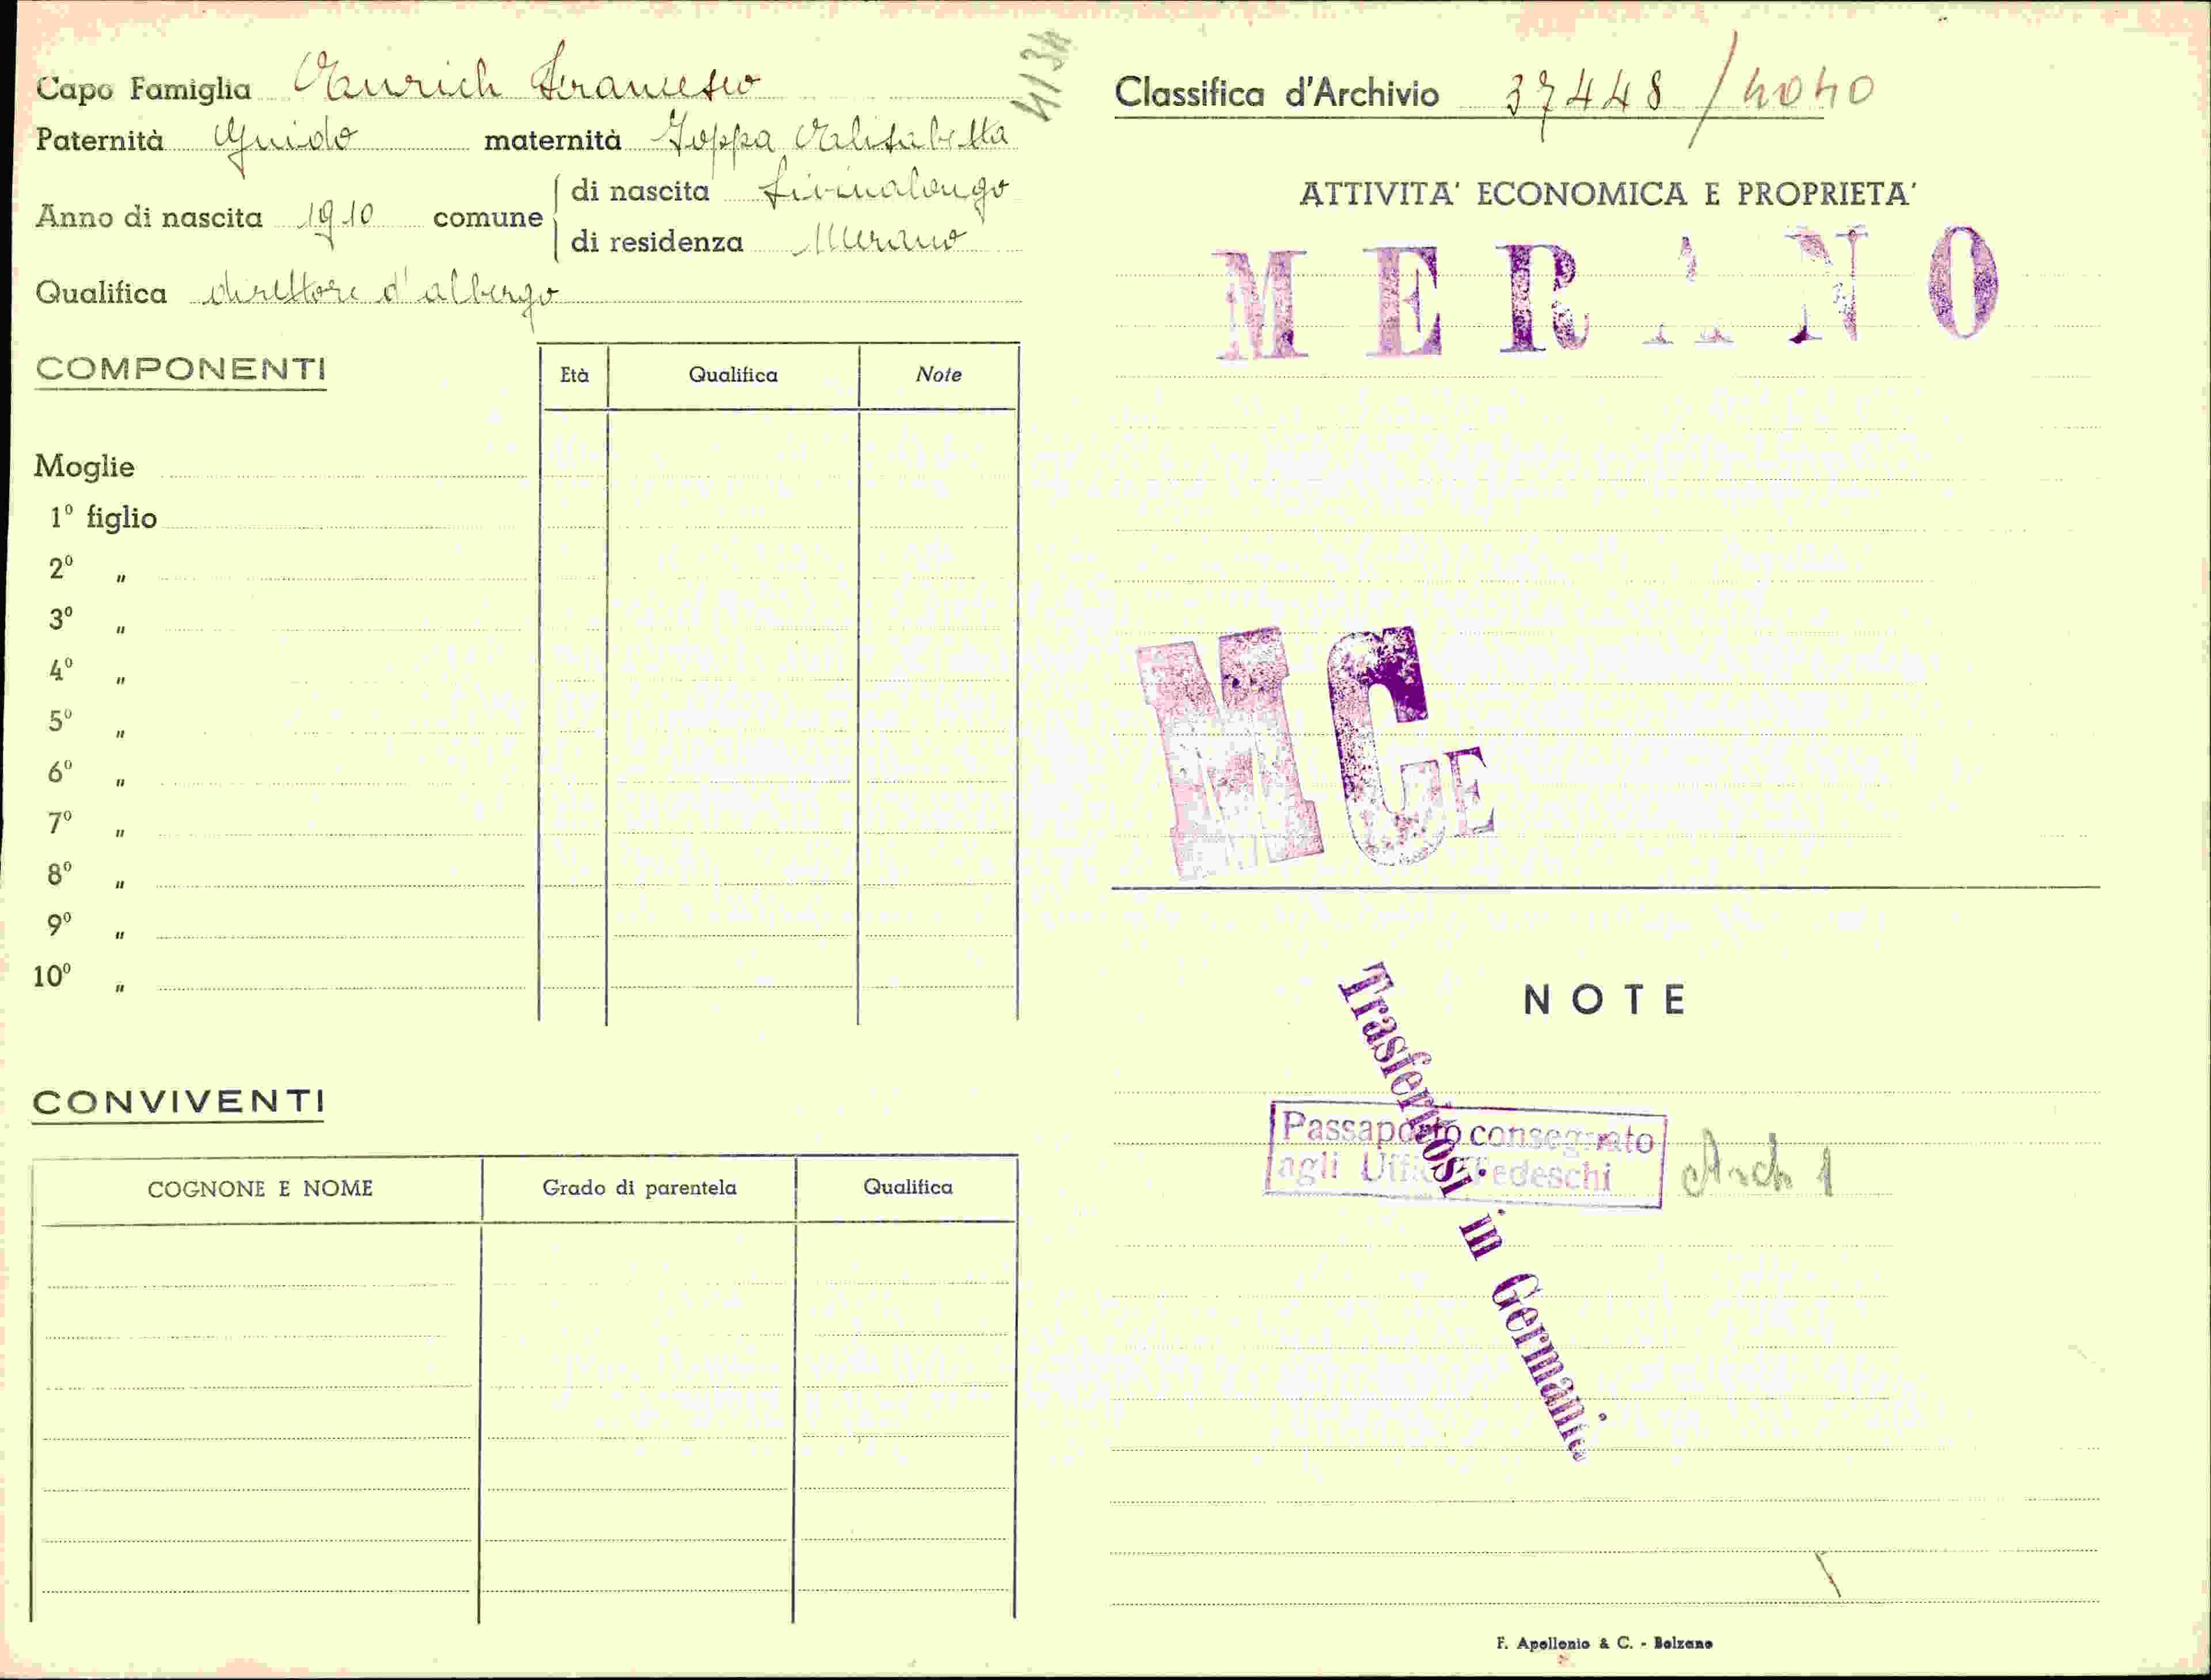 Capo Famiglia Francesco
Paternità Guido maternità Foppa Elisabetta
Anno di nascita 1910 comune di nascita Livinalongo
di residenza Merano
Qualifica direttore d'albergo
4134
COMPONENTI
Età Qualifica Note
Moglie
1º figlio
2º "
3º "
4º "
5º "
6º "
7º "
8º "
9º "
10º "
CONVIVENTI
COGNONE E NOME Grado di parentela Qualifica
Classifica d'Archivio 37448 / 4040
ATTIVITA' ECONOMICA E PROPRIETA'
MERANO
MCE
NOTE
Trasferitosi in Germania
Passaporto consegnato
agli Uffici Tedeschi
Arch 1
F. Apollonio & C. - Bolzano